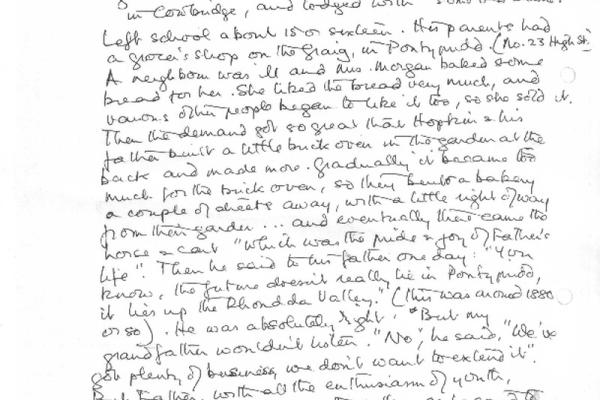 in Cowbridge, and lodged with
Left school about 15 or sixteen. His parents had
a grocer's shop on the Graig, in Pontypridd. (No. 23 High St.)
A neighbour was ill and Mrs. Morgan baked some
bread for her. She liked the bread very much, and
various other people began to like it too, so she sold it.
Then the demand got so great that Hopkin & his
father built a little brick oven in the garden at the
back and made more. Gradually it became too
much for the brick oven, so they built a bakery
a couple of streets away, with a little right of way
from their garden ... and eventually there came the
horse & cart "which was the pride & joy of Father's
life". Then he said to his father one day: "You
know, the future doesn't really lie in Pontypridd,
it lies up the Rhondda Valley." (This was around 1880
or so). He was absolutely right. "But my
grandfather wouldn't listen. "No", he said, "We've
got plenty of business, we don't want to extend it".
But Father, with all the enthusiasm of youth,